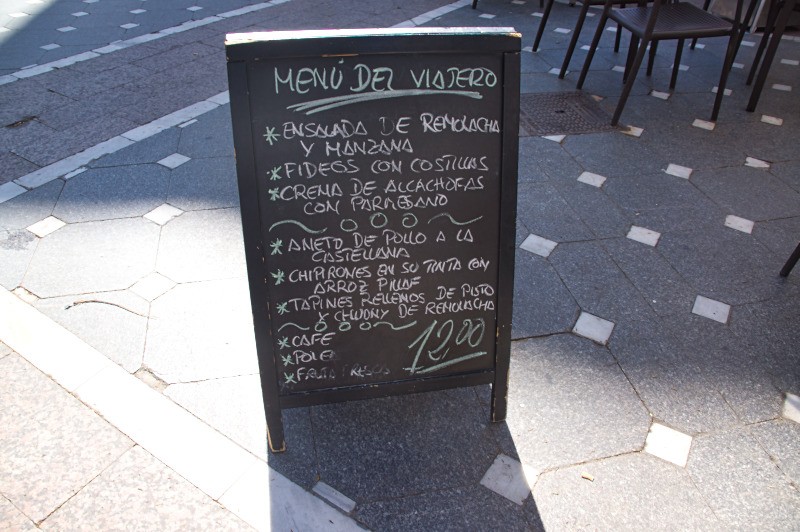 MENÚ DEL VIAJERO
* ENSALADA DE REMOLACHA
Y MANZANA
* FIDEOS CON COSTILLAS
* CREMA DE ALCACHOFAS
CON PARMESANO
* AMETO DE POLLO A LA
CASTELLANA
* CHIPIRONES EN SU TINTA CON
ARROZ PILAF
* TAPINES RELLENOS DE PISTO
Y CHUDNY DE REMOLACHA
* CAFE
12,00